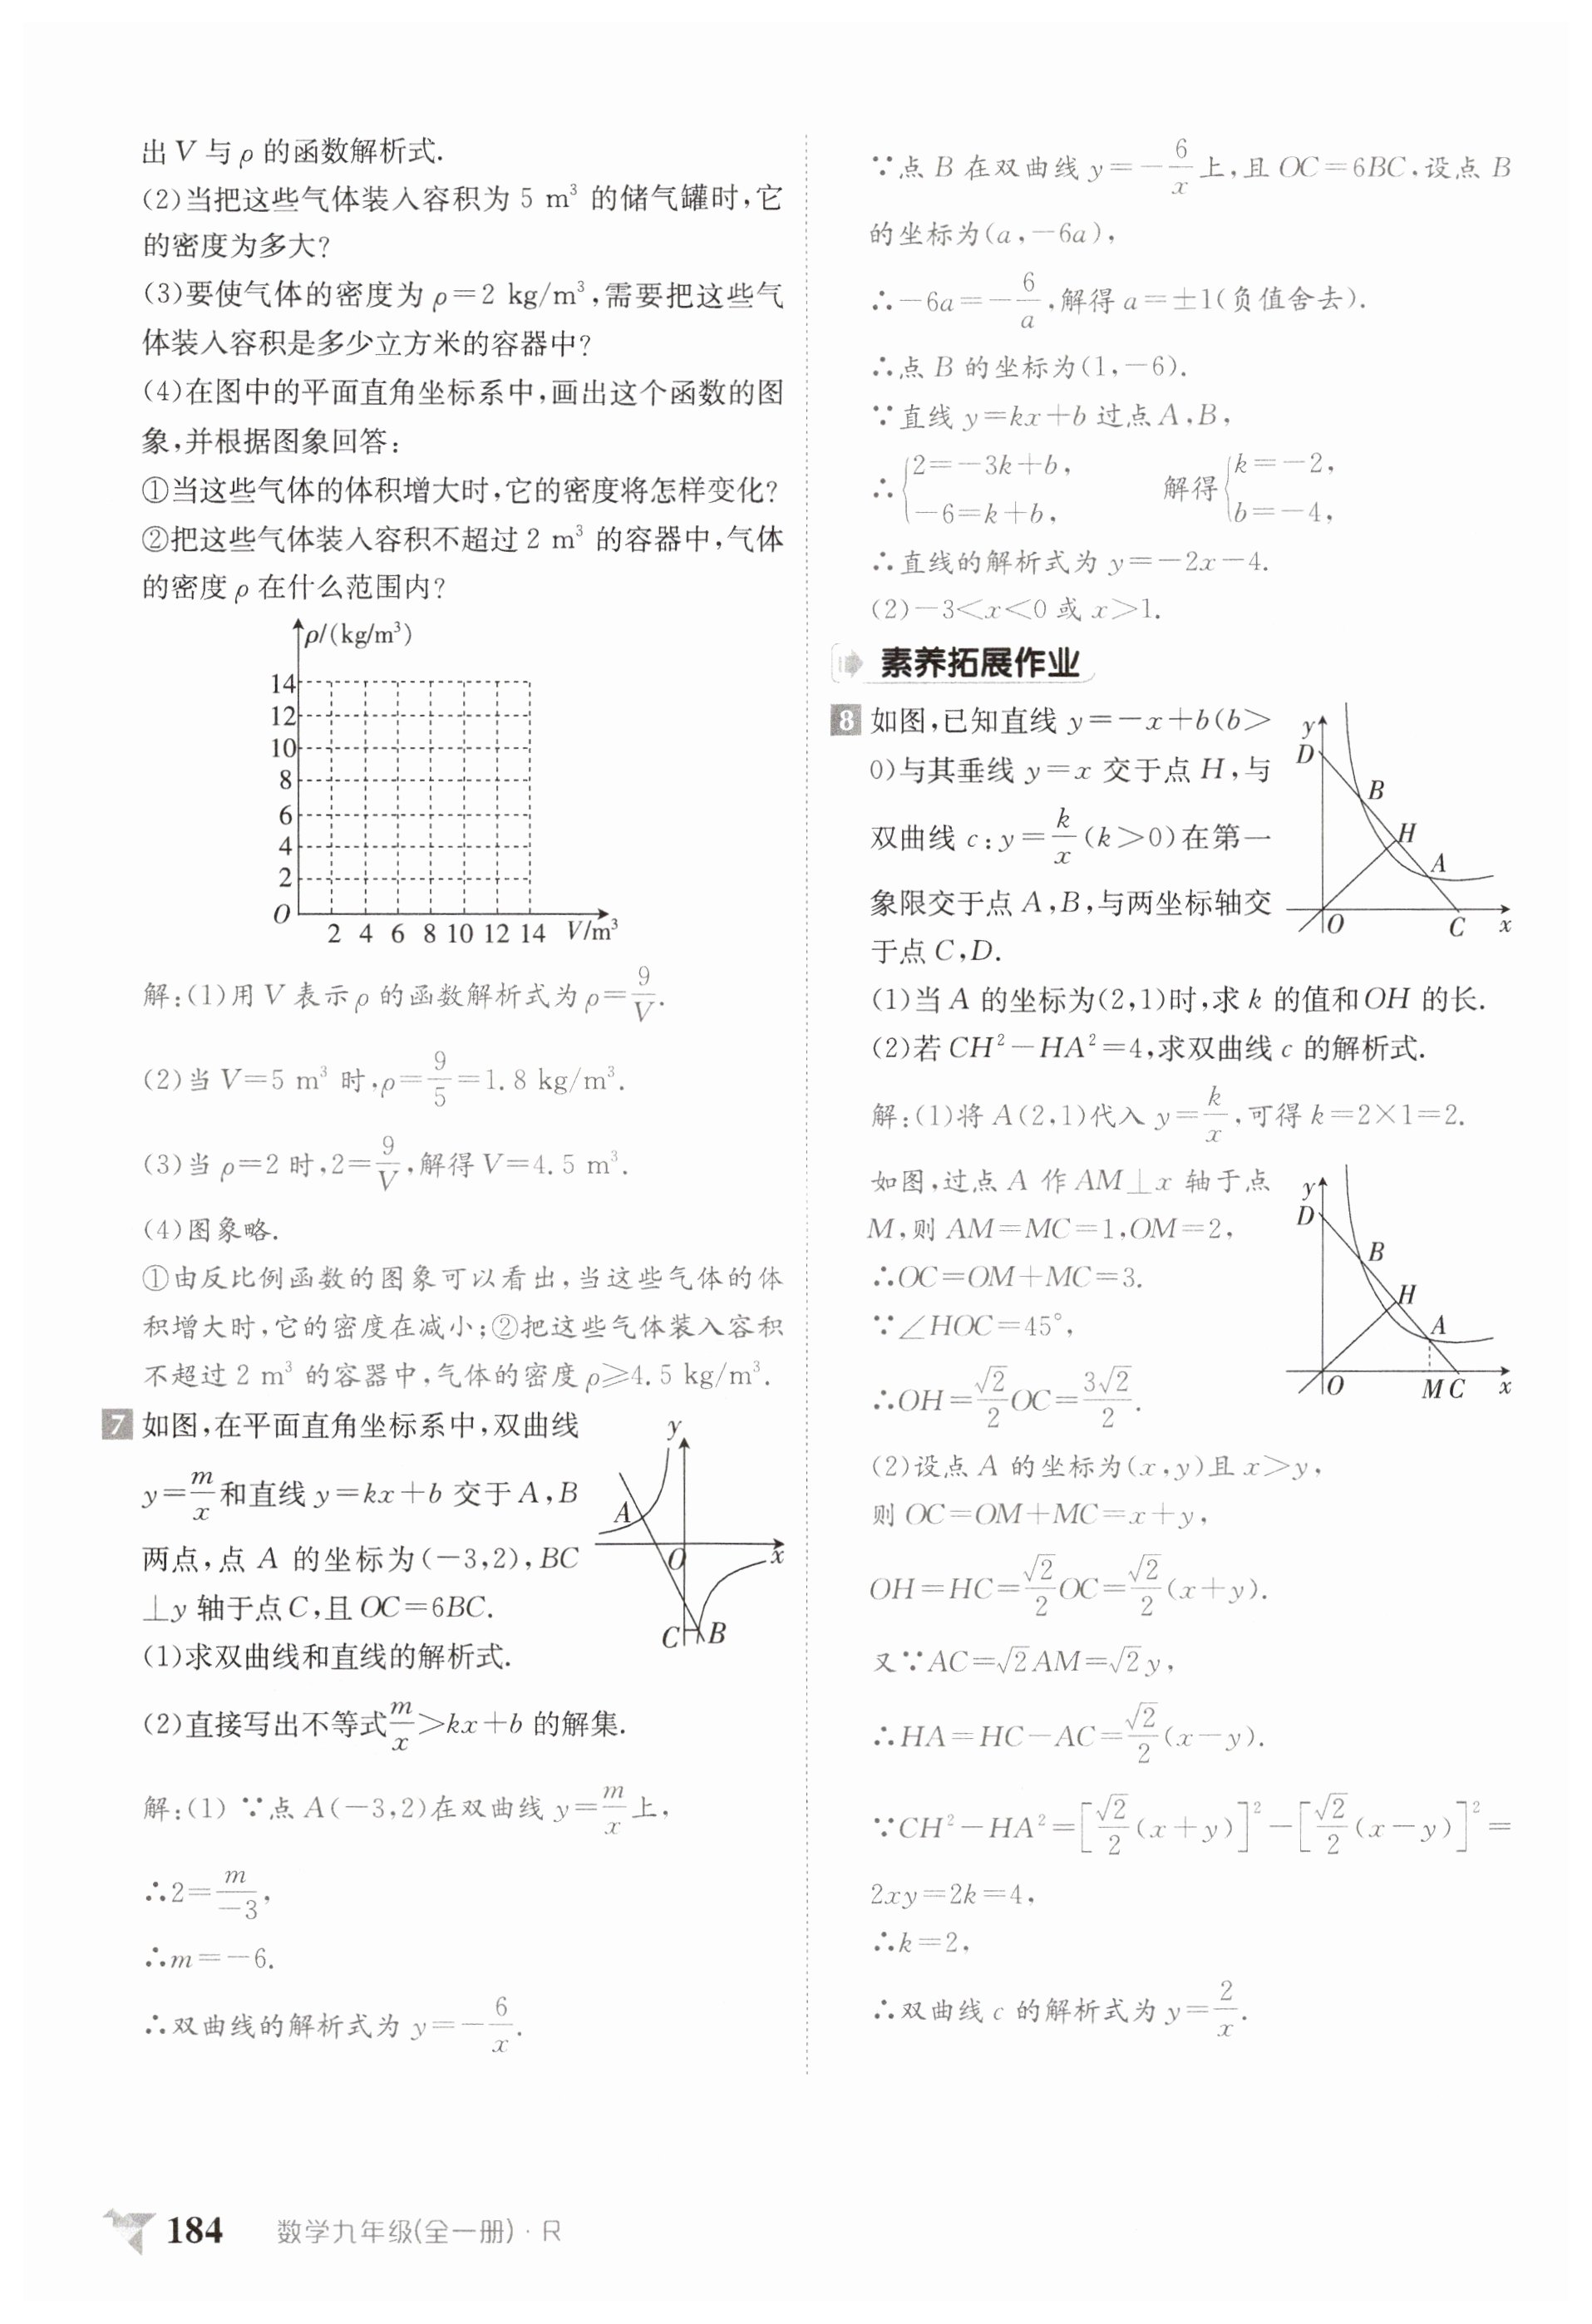 出 V 与 ρ 的函数解析式.
(2)当把这些气体装入容积为 5 m³ 的储气罐时,它
的密度为多大?
(3)要使气体的密度为 ρ=2 kg/m³,需要把这些气
体装入容积是多少立方米的容器中?
(4)在图中的平面直角坐标系中,画出这个函数的图
象,并根据图象回答:
①当这些气体的体积增大时,它的密度将怎样变化?
②把这些气体装入容积不超过 2 m³ 的容器中,气体
的密度 ρ 在什么范围内?
ρ/(kg/m³)
14
12
10
8
6
4
2
O
2 4 6 8 10 12 14 V/m³
解:(1)用 V 表示 ρ 的函数解析式为 ρ=9/V.
(2)当 V=5 m³ 时,ρ=9/5=1.8 kg/m³.
(3)当 ρ=2 时,2=9/V,解得 V=4.5 m³.
(4)图象略.
①由反比例函数的图象可以看出,当这些气体的体
积增大时,它的密度在减小;②把这些气体装入容积
不超过 2 m³ 的容器中,气体的密度 ρ⩾4.5 kg/m³.
7 如图,在平面直角坐标系中,双曲线
y=m/x 和直线 y=kx+b 交于 A,B
两点,点 A 的坐标为(-3,2),BC
⊥y 轴于点 C,且 OC=6BC.
y
A
O
x
C
B
(1)求双曲线和直线的解析式.
(2)直接写出不等式 m/x>kx+b 的解集.
解:(1) ∵点 A(-3,2)在双曲线 y=m/x 上,
∴2=m/-3,
∴m=-6.
∴双曲线的解析式为 y=-6/x.
∵点 B 在双曲线 y=-6/x 上,且 OC=6BC.设点 B
的坐标为(a,-6a),
∴-6a=-6/a,解得 a=±1(负值舍去).
∴点 B 的坐标为(1,-6).
∵直线 y=kx+b 过点 A,B,
∴{2=-3k+b, 解得{k=-2,
-6=k+b, b=-4,
∴直线的解析式为 y=-2x-4.
(2)-3<x<0 或 x>1.
素养拓展作业
8 如图,已知直线 y=-x+b(b>
0)与其垂线 y=x 交于点 H,与
双曲线 c:y=k/x(k>0)在第一
象限交于点 A,B,与两坐标轴交
于点 C,D.
y
D
B
H
A
O
C
x
(1)当 A 的坐标为(2,1)时,求 k 的值和 OH 的长.
(2)若 CH²-HA²=4,求双曲线 c 的解析式.
解:(1)将 A(2,1)代入 y=k/x,可得 k=2×1=2.
如图,过点 A 作 AM⊥x 轴于点
M,则 AM=MC=1,OM=2,
∴OC=OM+MC=3.
∵∠HOC=45°,
∴OH=√2/2 OC=3√2/2.
y
D
B
H
A
O
M C
x
(2)设点 A 的坐标为(x,y)且 x>y,
则 OC=OM+MC=x+y,
OH=HC=√2/2 OC=√2/2(x+y).
又∵AC=√2AM=√2y,
∴HA=HC-AC=√2/2(x-y).
∵CH²-HA²=[√2/2(x+y)]²-[√2/2(x-y)]²=
2xy=2k=4,
∴k=2,
∴双曲线 c 的解析式为 y=2/x.
184 数学九年级(全一册)·R